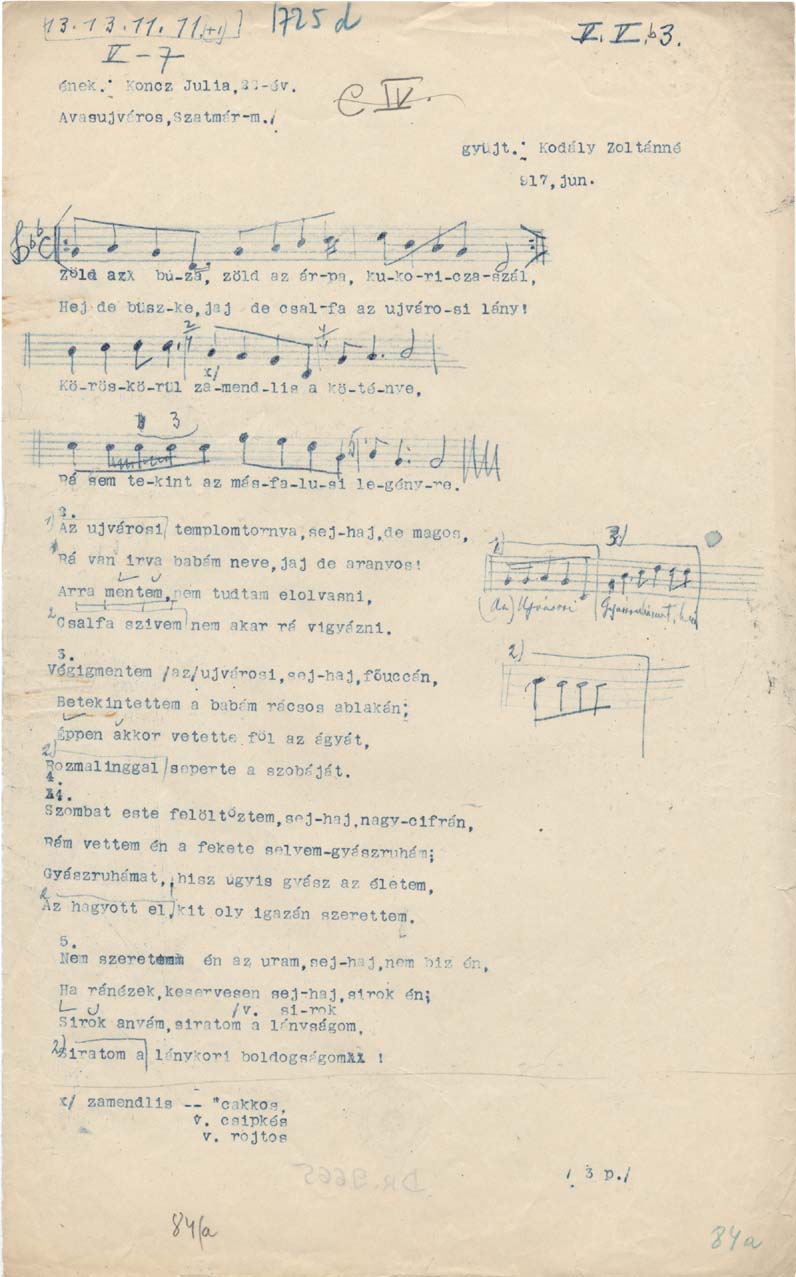 13. 13. 11. 11.(+1) 1725 d V. V. b3.
V-7
ének.: Koncz Julia,33-év.
C IV.
Avasujváros,Szatmár-m./
gyüjt.: Kodály Zoltánné
917,jun.
Zöld azX bú-za, zöld az ár-pa, ku-ko-ri-cza-szál,
Hej de büsz-ke,jaj de csal-fa az ujváro-si lány!
2
x/
Kö-rös-kö-rül za-mend-lis a kö-té-nye,
3
Rá sem te-kint az más-fa-lu-si le-gény-re.
2.
1) Az ujvárosi templomtornya,sej-haj,de magos,
Rá van irva babám neve,jaj de aranyos!
Arra mentem,nem tudtam elolvasni,
2 Csalfa szivem nem akar rá vigyázni.
1) 3/
(Az) Ujvárosi Gyászruhámat, hisz
2)
3.
Végigmentem /az/ujvárosi,sej-haj,főuccán,
Betekintettem a babám rácsos ablakán;
Éppen akkor vetette föl az ágyát,
2) Rozmalinggal seperte a szobáját.
4.
X4.
Szombat este felöltöztem,sej-haj,nagy-cifrán,
Rám vettem én a fekete selyem-gyászruhám;
Gyászruhámat, hisz ugyis gyász az életem,
2 Az hagyott el,kit oly igazán szerettem.
5.
Nem szeretem én az uram,sej-haj,nem biz én,
Ha ránézek,keservesen sej-haj,sirok én;
/v. si-rok
Sirok anyám,siratom a lányságom,
2) Siratom a lánykori boldogságomXX !
x/ zamendlis -- "cakkos,
v. csipkés
v. rojtos
/ 3 p./
DR. 9665
84/a
84a